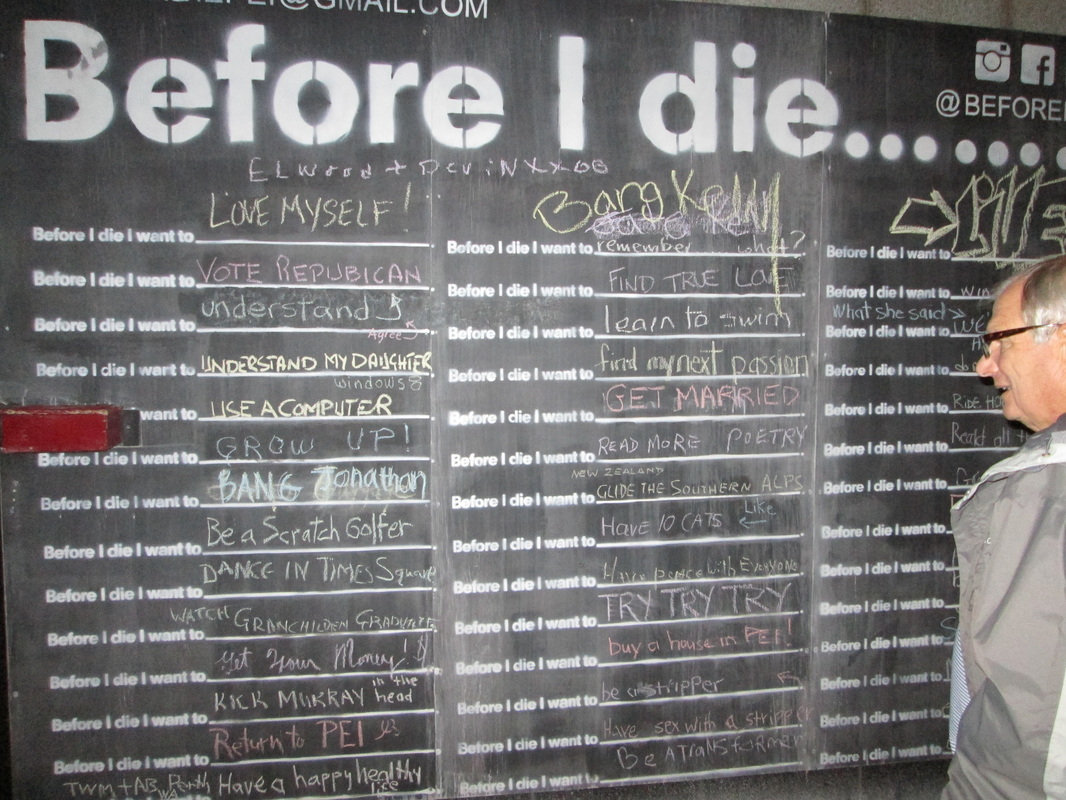 @GMAIL.COM
Before I die.......
@BEFORE
ELWood + DeviN XX
LOVE MYSELF!
Before I die I want to
Before I die I want to VOTE REPUBICAN
Before I die I want to understand
Agree
Before I die I want to UNDERSTAND MY DAUGHTER
windows 8
want to USE A COMPUTER
Before I die I want to GROW UP!
Before I die I want to BANG Jonathan
Before I die I want to Be a Scratch Golfer
Before I die I want to DANCE IN TIMES Square
Before I die I want to WATCH GRANCHILDEN GRADUATE
Before I die I want to Get Your Money!
in the
Before I die I want to KICK MURRAY head
Before I die I want to Return to PEI
TWM + AB Perth WA Have a happy healthy
life
Bang Kelly
Before I die I want to remember what?
Before I die I want to FIND TRUE LOVE
Before I die I want to learn to swim
Before I die I want to find my next passion
Before I die I want to GET MARRIED
Before I die I want to READ MORE POETRY
NEW ZEALAND
Before I die I want to GLIDE THE SOUTHERN ALPS
Like
Before I die I want to HAVE 10 CATS
Before I die I want to Have peace with Everyone
Before I die I want to TRY TRY TRY
Before I die I want to buy a house in PEI!
Before I die I want to be a stripper
Before I die I want to Have sex with a stripper
Before I die I want to Be A TRANSformer
Before I die I want to
Before I die I want to
What she said
Before I die I want to
Before I die I want to
Before I die I want to
Before I die I want to Read all
Before I die I want to
Before I die I want to
Before I die I want to
Before I die I want to
Before I die I want to
Before I die I want to
Before I die I want to
Before I die I want to